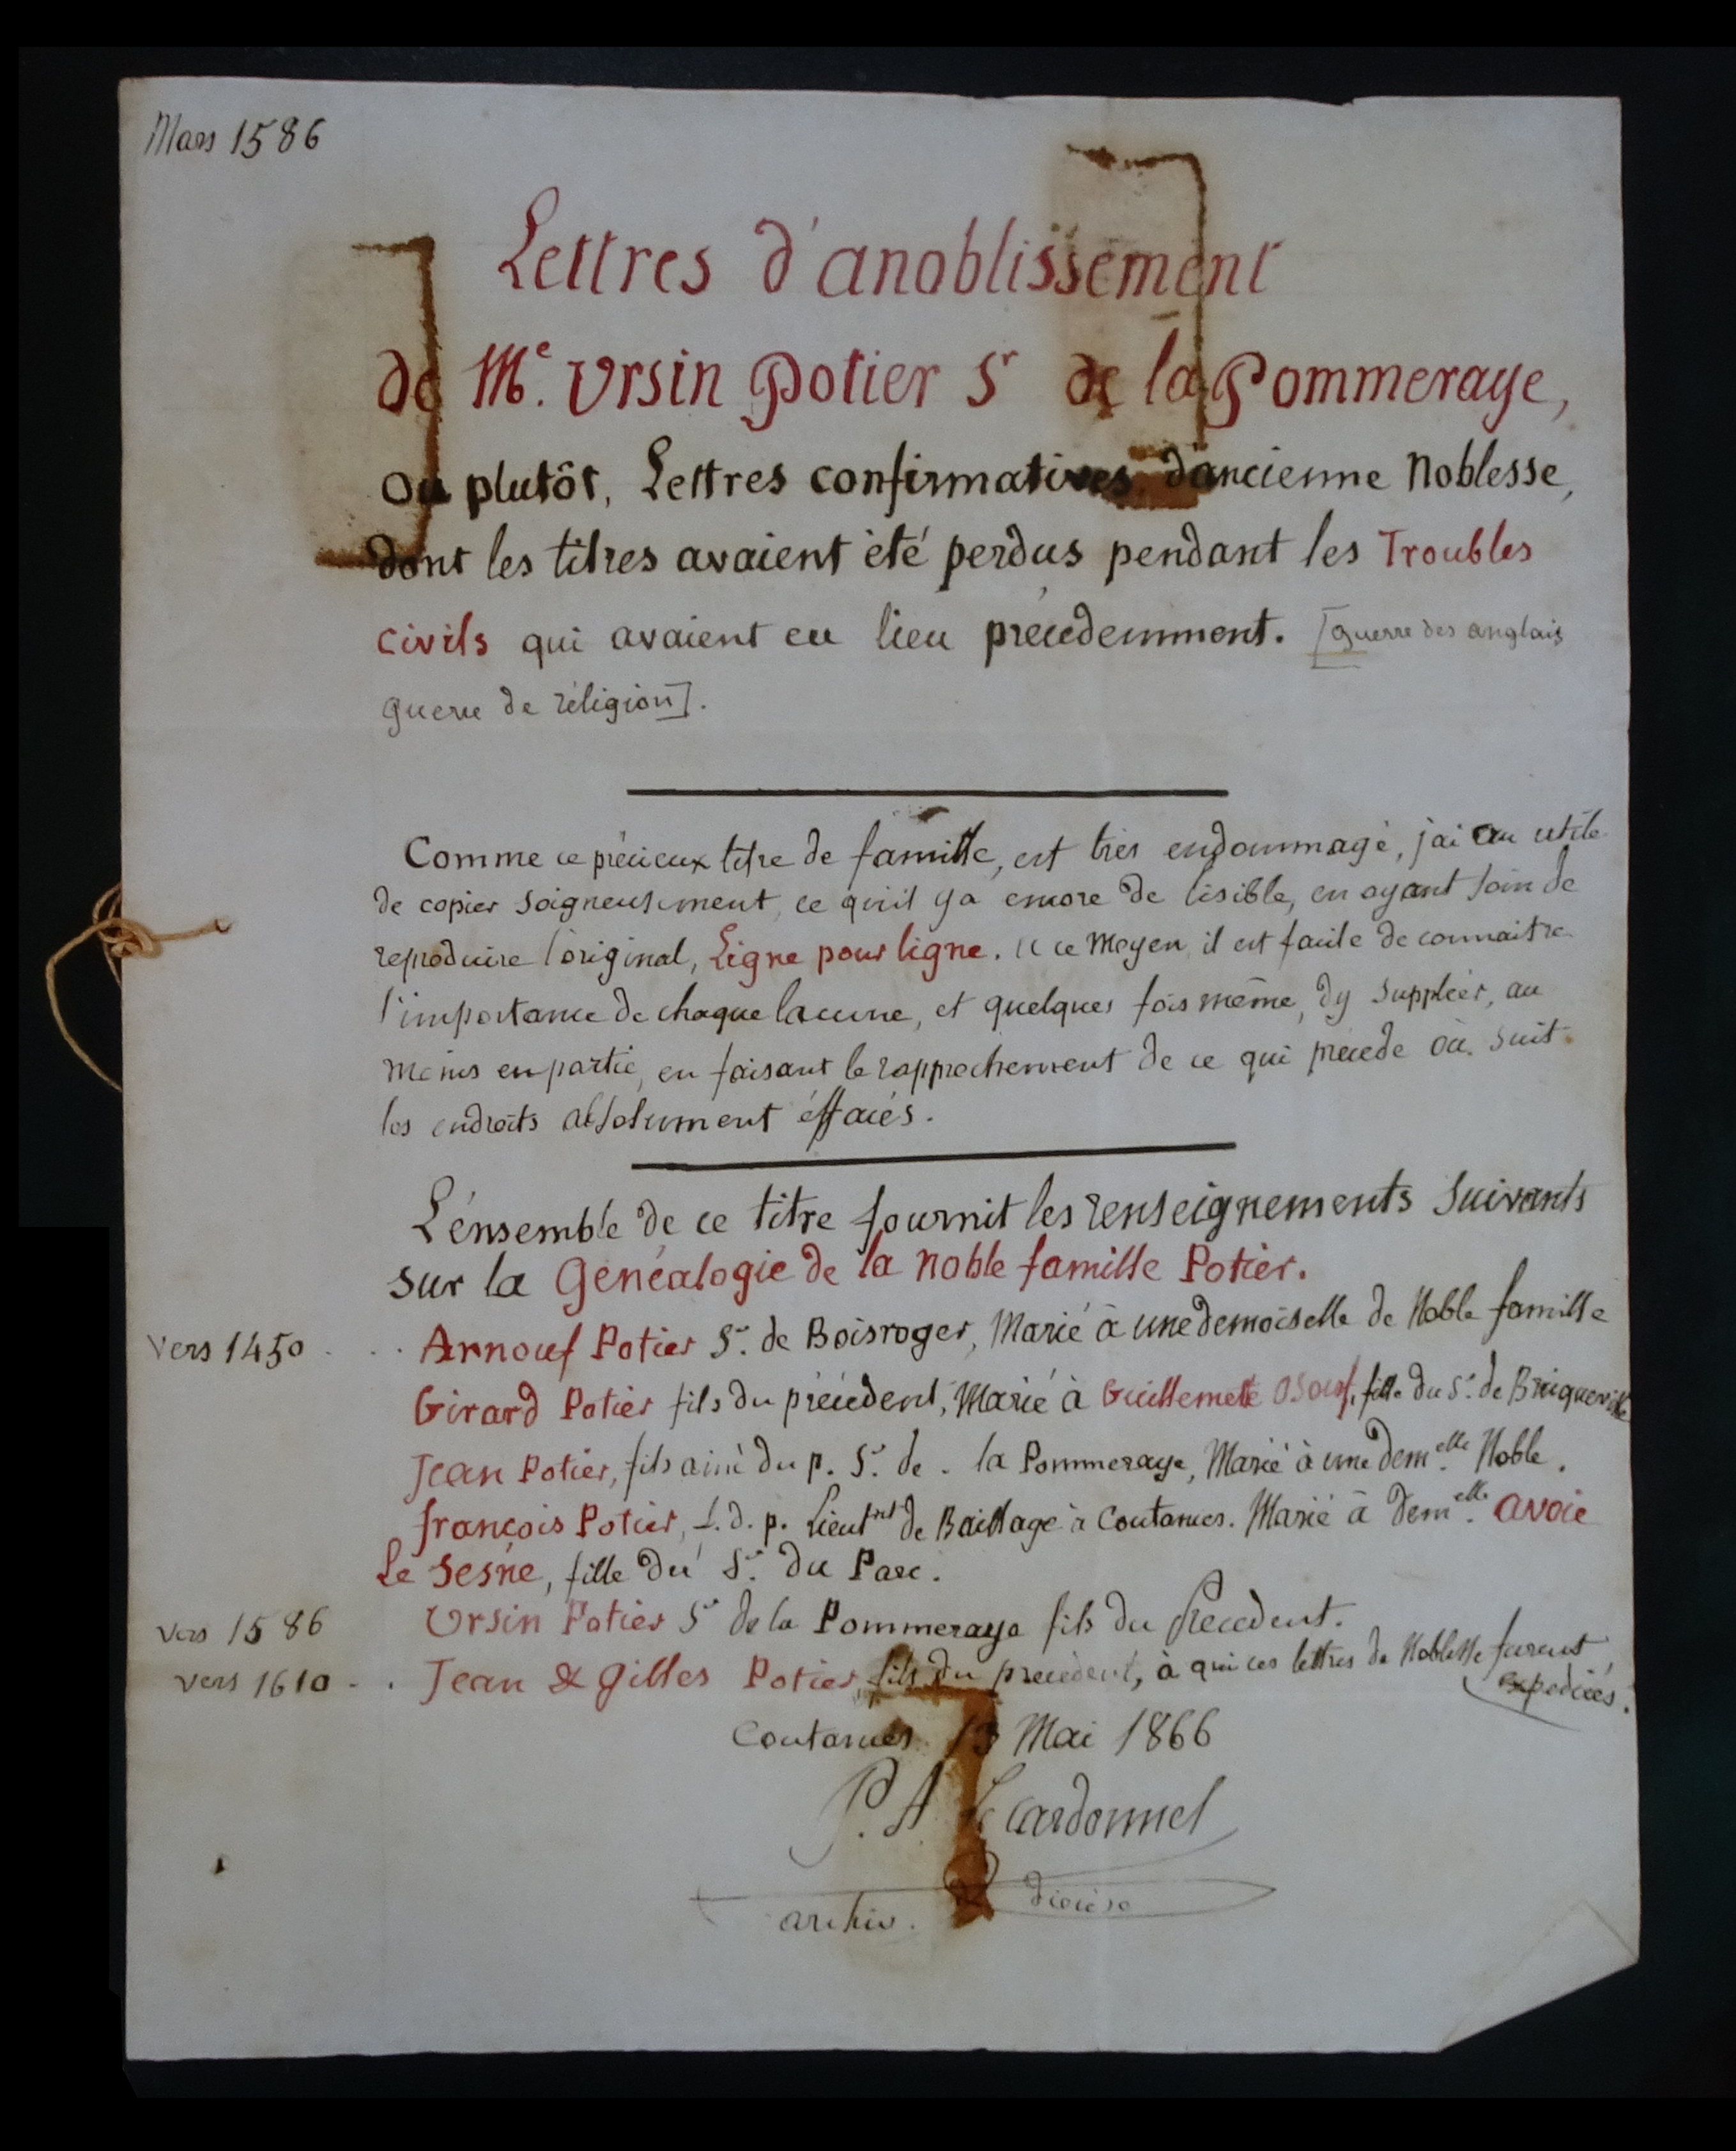 Mars 1586
Lettres d'anoblissement
de Me. Ursin Potier Sr de la Pommeraye,
ou plutôt, Lettres confirmatives d'ancienne Noblesse,
dont les titres avaient été perdus pendant les Troubles
civils qui avaient eu lieu précédemment. [guerre des anglais
guerre de réligion].
Comme ce précieux titre de famille, est très endommagé, j'ai cru utile
de copier soigneusement, ce qu'il y a encore de lisible, en ayant soin de
reproduire l'original, Ligne pour ligne. ce Moyen, il est facile de connaitre
l'importance de chaque lacune, et quelques fois même, d'y suppléer, au
moins en partie, en faisant le rapprochement de ce qui précede ou suit
les endroits absolument éffacés.
L'ensemble de ce titre fournit les renseignements suivants
sur la Généalogie de la noble famille Potier.
Vers 1450 . . . Arnouf Potier Sr. de Boisroger, Marié à une demoiselle de Noble famille
Girard Potier fils du précédent, Marié à Guillemete Osouf, fille du Sr. de Briqueville
Jean Potier, fils ainé du p. Sr. de . la Pommeraye, Marié à une demelle. Noble.
françois Potier, f. d. p. Lieutnt de Baillage à Coutances. Marié à demelle. avoie
Le Sesne, fille du Sr. du Parc.
vers 1586 Ursin Potier Sr de la Pommeraye fils du Précédent.
vers 1610 . . Jean & Gilles Potier, fils du precedent, à qui ces lettres de Noblesse furent
expediées.
Coutances 13 Mai 1866
P. A. Le cardonnel
archiv. diocèse